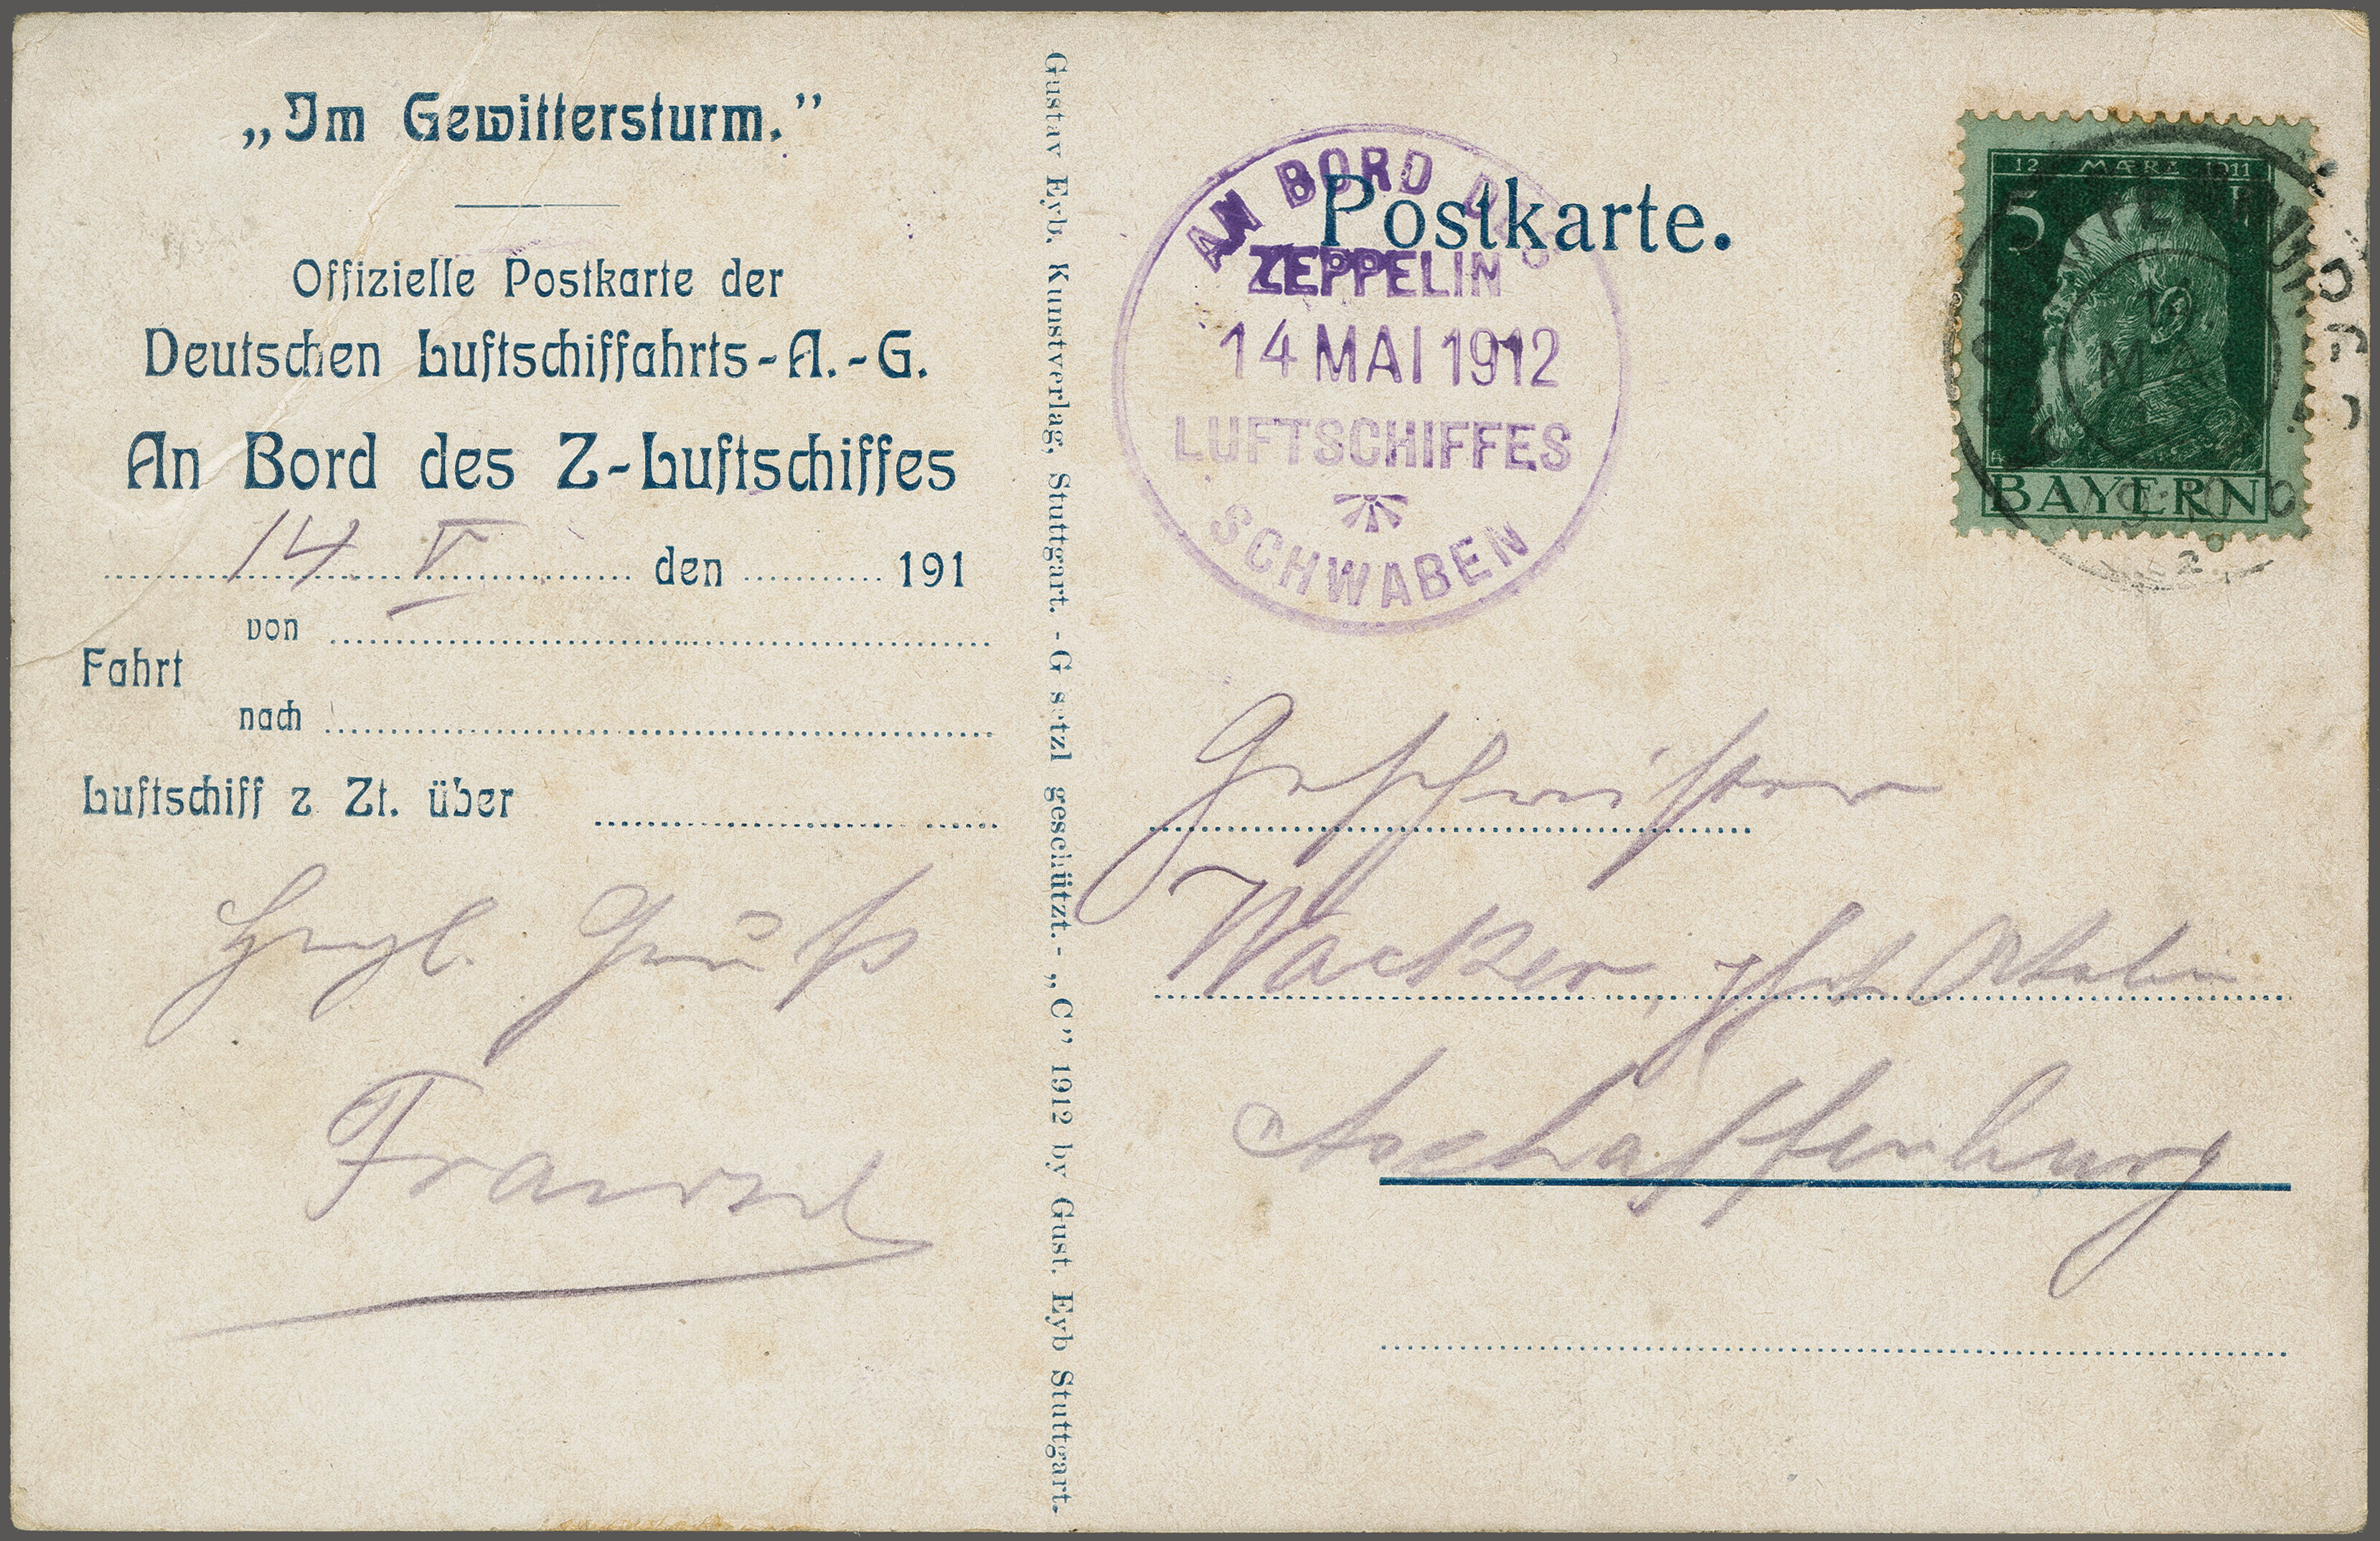 „Im Gewittersturm.”
Offizielle Postkarte der
Deutschen Luftschiffahrts-A.-G.
An Bord des Z-Luftschiffes
14. V. den 191
von
Fahrt
nach
Luftschiff z Zt. über
Hrzl. Gruß
Gustav Eyb, Kunstverlag, Stuttgart. - G s tzl geschützt. - „C” 1912 by Gust. Eyb Stuttgart.
Postkarte.
AN BORD DES
ZEPPELIN
14 MAI 1912
LUFTSCHIFFES
SCHWABEN
12 MÆRZ 1911
5
BAYERN
MAI
2.
Geschwister
Wacker,
Aschaffenburg